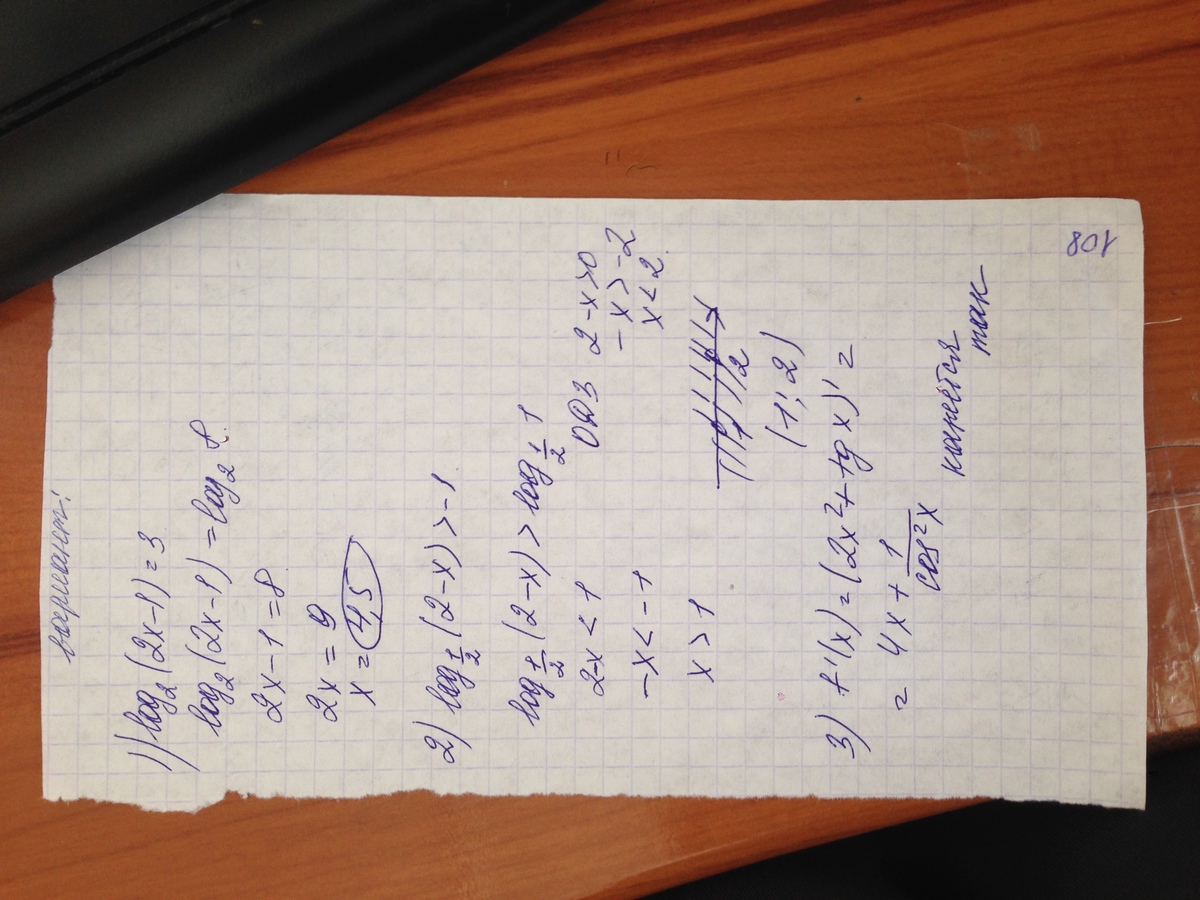 вариант!
1) log₂(2x-1)=3
log₂(2x-1)=log₂8.
2x-1=8
2x=9
x=4,5
2) log½(2-x)>-1
log½(2-x)>log½1
2-x<1
-x<-1
x>1
ОДЗ 2-x>0
-x>-2
x<2
1 2 x
(1; 2)
3) f'(x)=(2x²+tgx)'=
= 4x+1/cos²x
кажется
так
108